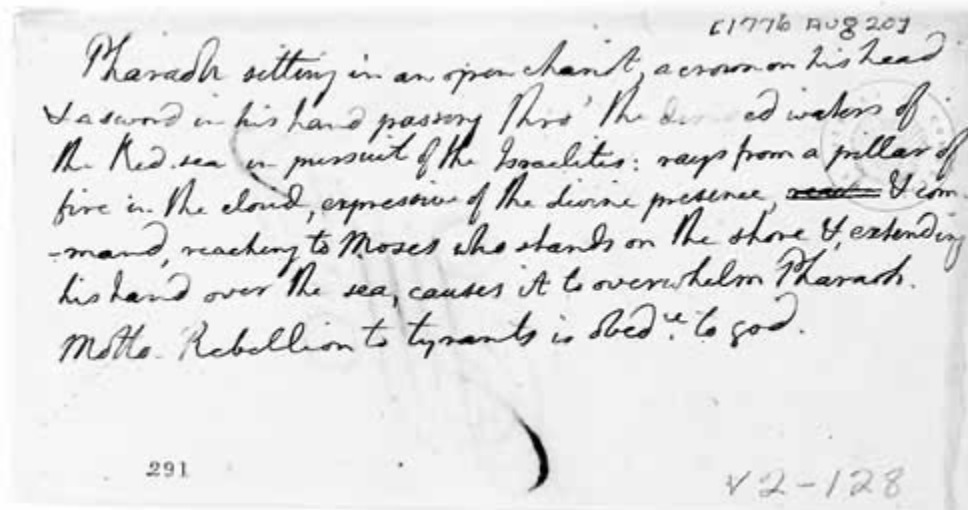 [1776 AUG 20]
Pharaoh sitting in an open chariot, a crown on his head
& a sword in his hand passing thro' the ed waters of
the Red sea in pursuit of the Israelites: rays from a pillar of
fire in the cloud, expressive of the divine presence, & com-
-mand, reaching to Moses who stands on the shore &, extending
his hand over the sea, causes it to overwhelm Pharaoh.
Motto. Rebellion to tyrants is obedce. to god.
291
V2-128